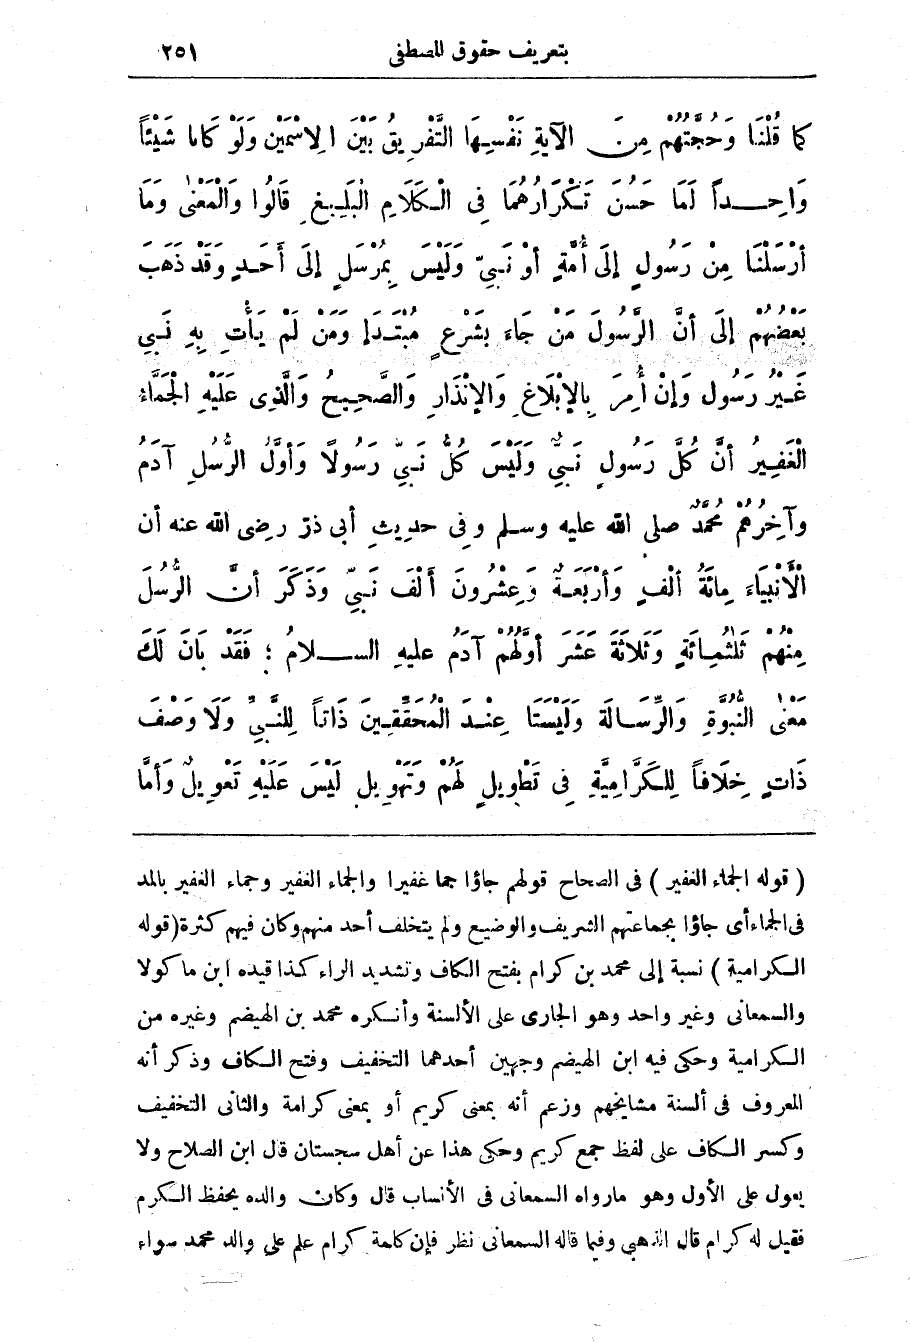 بتعريف حقوق المصطفى ٢٥١
كَمَا قُلْنَا وَحُجَّتُهُمْ مِنَ الآيَةِ نَفْسِهَا التَّفْرِيقُ بَيْنَ الِاسْمَيْنِ وَلَوْ كَانَا شَيْئاً
وَاحِداً لَمَا حَسُنَ تَكْرَارُهُمَا فِى الْكَلَامِ الْبَلِيغِ قَالُوا وَالْمَعْنٰى وَمَا
أَرْسَلْنَا مِنْ رَسُولٍ إِلَى أُمَّةٍ أَوْ نَبِيٍّ وَلَيْسَ بِمُرْسَلٍ إِلَى أَحَدٍ وَقَدْ ذَهَبَ
بَعْضُهُمْ إِلَى أَنَّ الرَّسُولَ مَنْ جَاءَ بِشَرْعٍ مُبْتَدَإٍ وَمَنْ لَمْ يَأْتِ بِهِ نَبِي
غَيْرُ رَسُولٍ وَإِنْ أُمِرَ بِالْإِبْلَاغِ وَالْإِنْذَارِ وَالصَّحِيحُ وَالَّذِى عَلَيْهِ الْجَمَّاءُ
الْغَفِيرُ أَنَّ كُلَّ رَسُولٍ نَبِيٌّ وَلَيْسَ كُلُّ نَبِيٍّ رَسُولًا وَأَوَّلُ الرُّسُلِ آدَمُ
وَآخِرُهُمْ مُحَمَّدٌ صلى الله عليه وسلم وفى حديثِ أبى ذرّ رضى الله عنه أن
الْأَنْبِيَاءَ مِائَةُ أَلْفٍ وَأَرْبَعَةٌ وَعِشْرُونَ أَلْفَ نَبِيٍّ وَذَكَرَ أَنَّ الرُّسُلَ
مِنْهُمْ ثَلٰثُمِائَةٍ وَثَلاثَةَ عَشَرَ أَوَّلُهُمْ آدَمُ عليهِ السلامُ ؛ فَقَدْ بَانَ لَكَ
مَعْنٰى النُّبُوَّةِ وَالرِّسَالَةِ وَلَيْسَتَا عِنْدَ الْمُحَقِّقِينَ ذَاتاً لِلنَّبِيِّ وَلَا وَصْفَ
ذَاتٍ خِلَافاً لِلْكَرَّامِيَّةِ فِى تَطْوِيلٍ لَهُمْ وَتَهْوِيلٍ لَيْسَ عَلَيْهِ تَعْوِيلٌ وَأَمَّا
( قوله الجماء الغفير ) فى الصحاح قولهم جاؤا جما غفيرا والجماء الغفير وجماء الغفير بالمد
فى الجماء أى جاؤا بجماعتهم الشريف والوضيع ولم يتخلف أحد منهم وكان فيهم كثرة (قوله
الكرامية ) نسبة إلى محمد بن كرام بفتح الكاف وتشديد الراء كذا قيده ابن ماكولا
والسمعانى وغير واحد وهو الجارى على الألسنة وأنكره محمد بن الهيضم وغيره من
الكرامية وحكى فيه ابن الهيضم وجهين أحدهما التخفيف وفتح الكاف وذكر أنه
المعروف فى ألسنة مشايخهم وزعم أنه بمعنى كريم أو بمعنى كرامة والثانى التخفيف
وكسر الكاف على لفظ جمع كريم وحكى هذا عن أهل سجستان قال ابن الصلاح ولا
يعول على الأول وهو مارواه السمعانى فى الأنساب قال وكان والده يحفظ الكرم
فقيل له كرام قال الذهبى وفيما قاله السمعانى نظر فإن كلمة كرام علم على والد محمد سواء